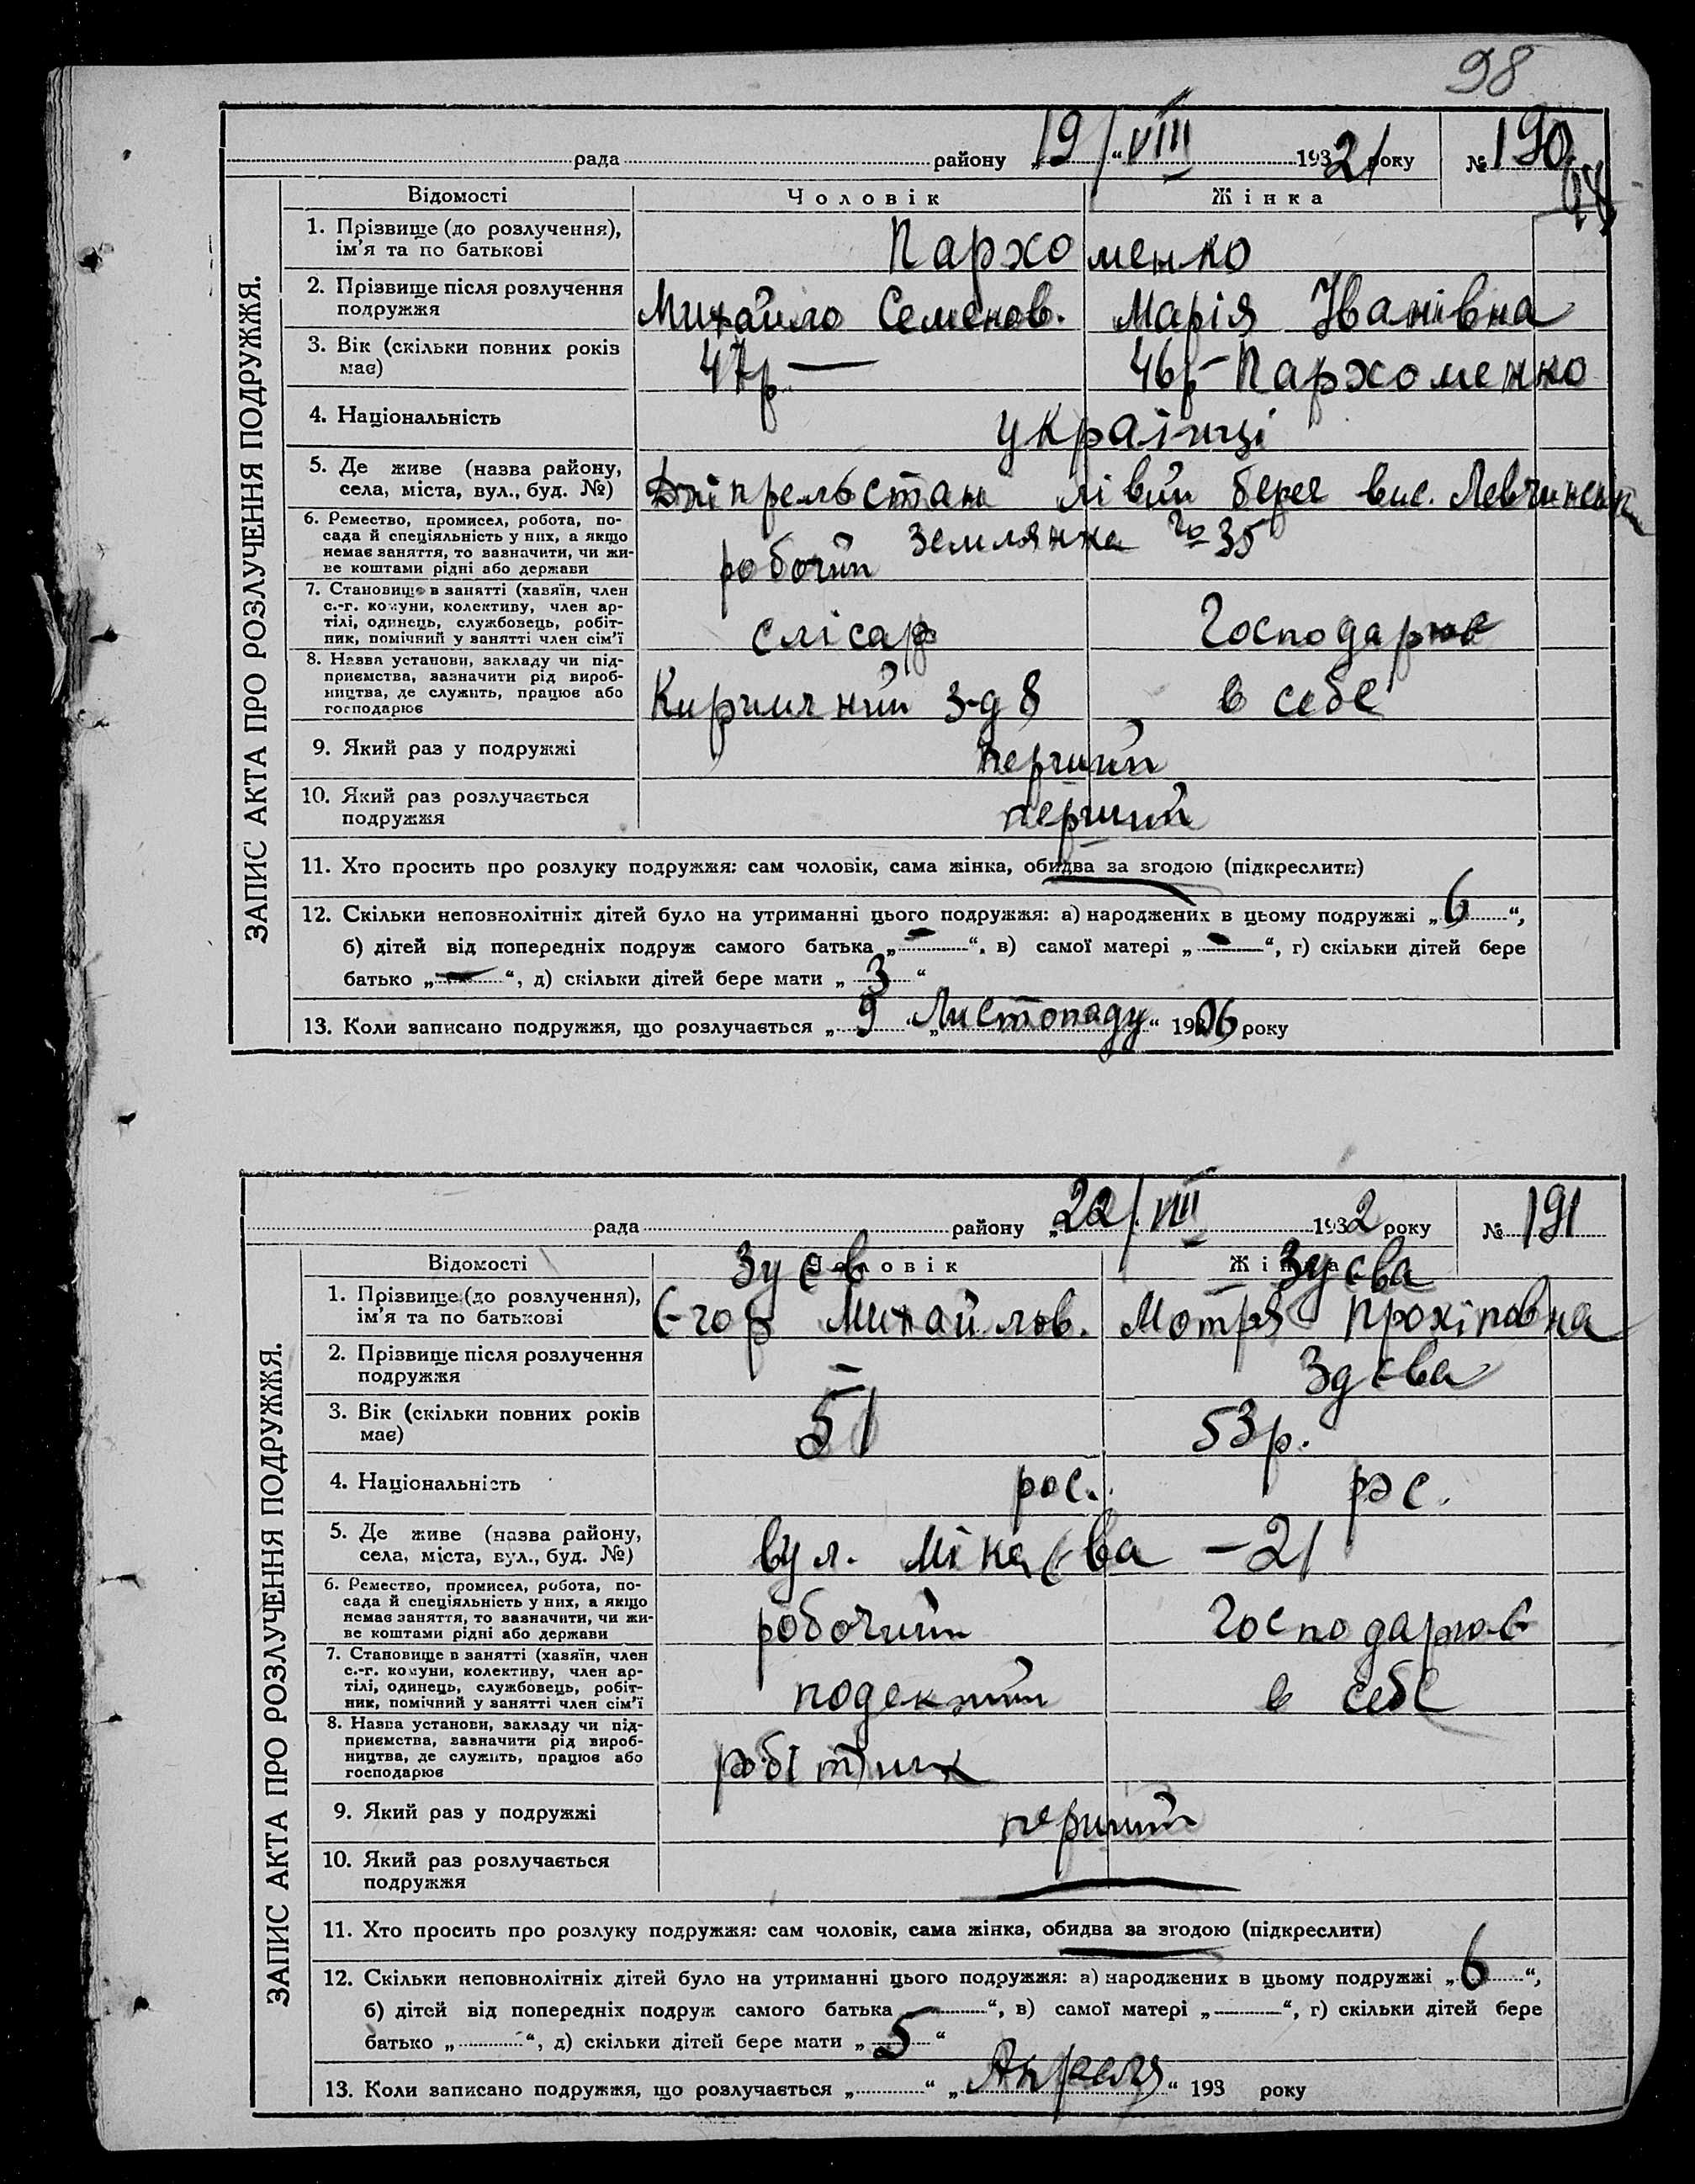 98
рада району „19/“ VIII 1932 року № 190
98
Відомості Чоловік Жінка
ЗАПИС АКТА ПРО РОЗЛУЧЕННЯ ПОДРУЖЖЯ.
1. Прізвище (до розлучення), Пархоменко
ім'я та по батькові
2. Прізвище після розлучення Михайло Семенов. Марія Іванівна
подружжя
3. Вік (скільки повних років 47р — 46р – Пархоменко
має)
4. Національність українці
5. Де живе (назва району, Дніпрельстан лівий берег вис.
села, міста, вул., буд. №)
6. Ремество, промисел, робота, по- землянка № 35
сада й спеціяльність у них, а якщо робочий
немає заняття, то зазначити, чи жи-
ве коштами рідні або держави
7. Становище в занятті (хазяїн, член
с.-г. комуни, колективу, член ар-
тілі, одинець, службовець, робіт- слісар Господарює
ник, помічний у занятті член сім'ї
8. Назва установи, закладу чи під-
приємства, зазначити рід вироб- Кирпичний з-д 8 в себе
ництва, де служить, працює або
господарює
9. Який раз у подружжі перший
10. Який раз розлучається перший
подружжя
11. Хто просить про розлуку подружжя: сам чоловік, сама жінка, обидва за згодою (підкреслити)
12. Скільки неповнолітніх дітей було на утриманні цього подружжя: а) народжених в цьому подружжі „6“,
б) дітей від попередніх подруж самого батька „—“, в) самої матері „—“, г) скільки дітей бере
батько „—“, д) скільки дітей бере мати „3“
13. Коли записано подружжя, що розлучається „9“ „Листопаду“ 1906 року
рада району „22/ VIII 1932 року № 191
Відомості Чоловік Жінка
Зуєв Зуєва
ЗАПИС АКТА ПРО РОЗЛУЧЕННЯ ПОДРУЖЖЯ.
1. Прізвище (до розлучення), Єгор Михайлов. Мотря Прокіповна
ім'я та по батькові
2. Прізвище після розлучення — Зуєва
подружжя
3. Вік (скільки повних років 51 53р.
має)
4. Національність рос. рос.
5. Де живе (назва району, вул. – 21
села, міста, вул., буд. №)
6. Ремество, промисел, робота, по-
сада й спеціяльність у них, а якщо робочий господарює
немає заняття, то зазначити, чи жи-
ве коштами рідні або держави
7. Становище в занятті (хазяїн, член
с.-г. комуни, колективу, член ар-
тілі, одинець, службовець, робіт- в себе
ник, помічний у занятті член сім'ї
8. Назва установи, закладу чи під-
приємства, зазначити рід вироб-
ництва, де служить, працює або робітник
господарює
9. Який раз у подружжі перший
10. Який раз розлучається —
подружжя
11. Хто просить про розлуку подружжя: сам чоловік, сама жінка, обидва за згодою (підкреслити)
12. Скільки неповнолітніх дітей було на утриманні цього подружжя: а) народжених в цьому подружжі „6“,
б) дітей від попередніх подруж самого батька „“, в) самої матері „“, г) скільки дітей бере
батько „“, д) скільки дітей бере мати „5“
13. Коли записано подружжя, що розлучається „“ „Апреля“ 193 року